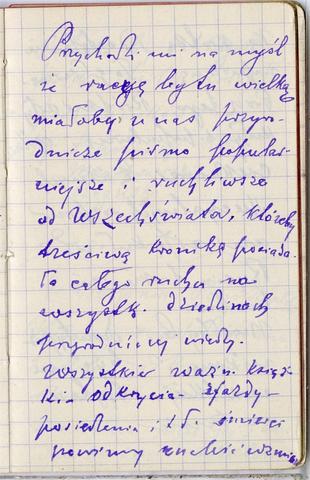 Przychodzi mi na myśl
że rację bytu wielką
miałoby u nas przyro-
dnicze pismo popular-
niejsze i ruchliwsze
od Wszechświata, któreby
treściwą kronikę posiada-
ło całego ruchu na
wszystk. dziedzinach
przyrodniczej wiedzy.
Wszystkie ważn. książ-
ki - odkrycia - zjazdy -
posiedzenia i t.d.
powinny